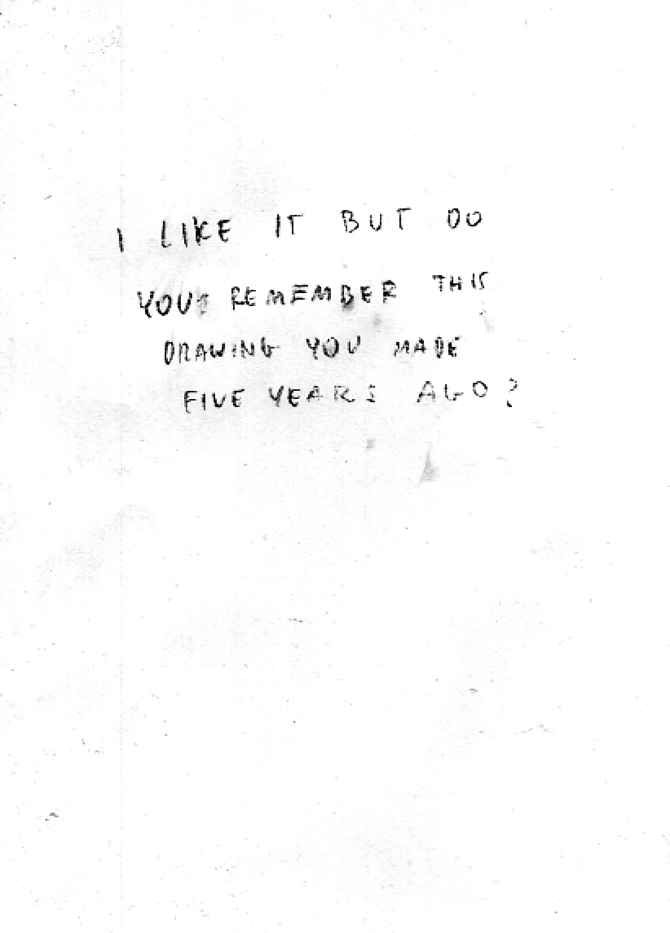 I LIKE IT BUT DO
YOU REMEMBER THIS
DRAWING YOU MADE
FIVE YEARS AGO?